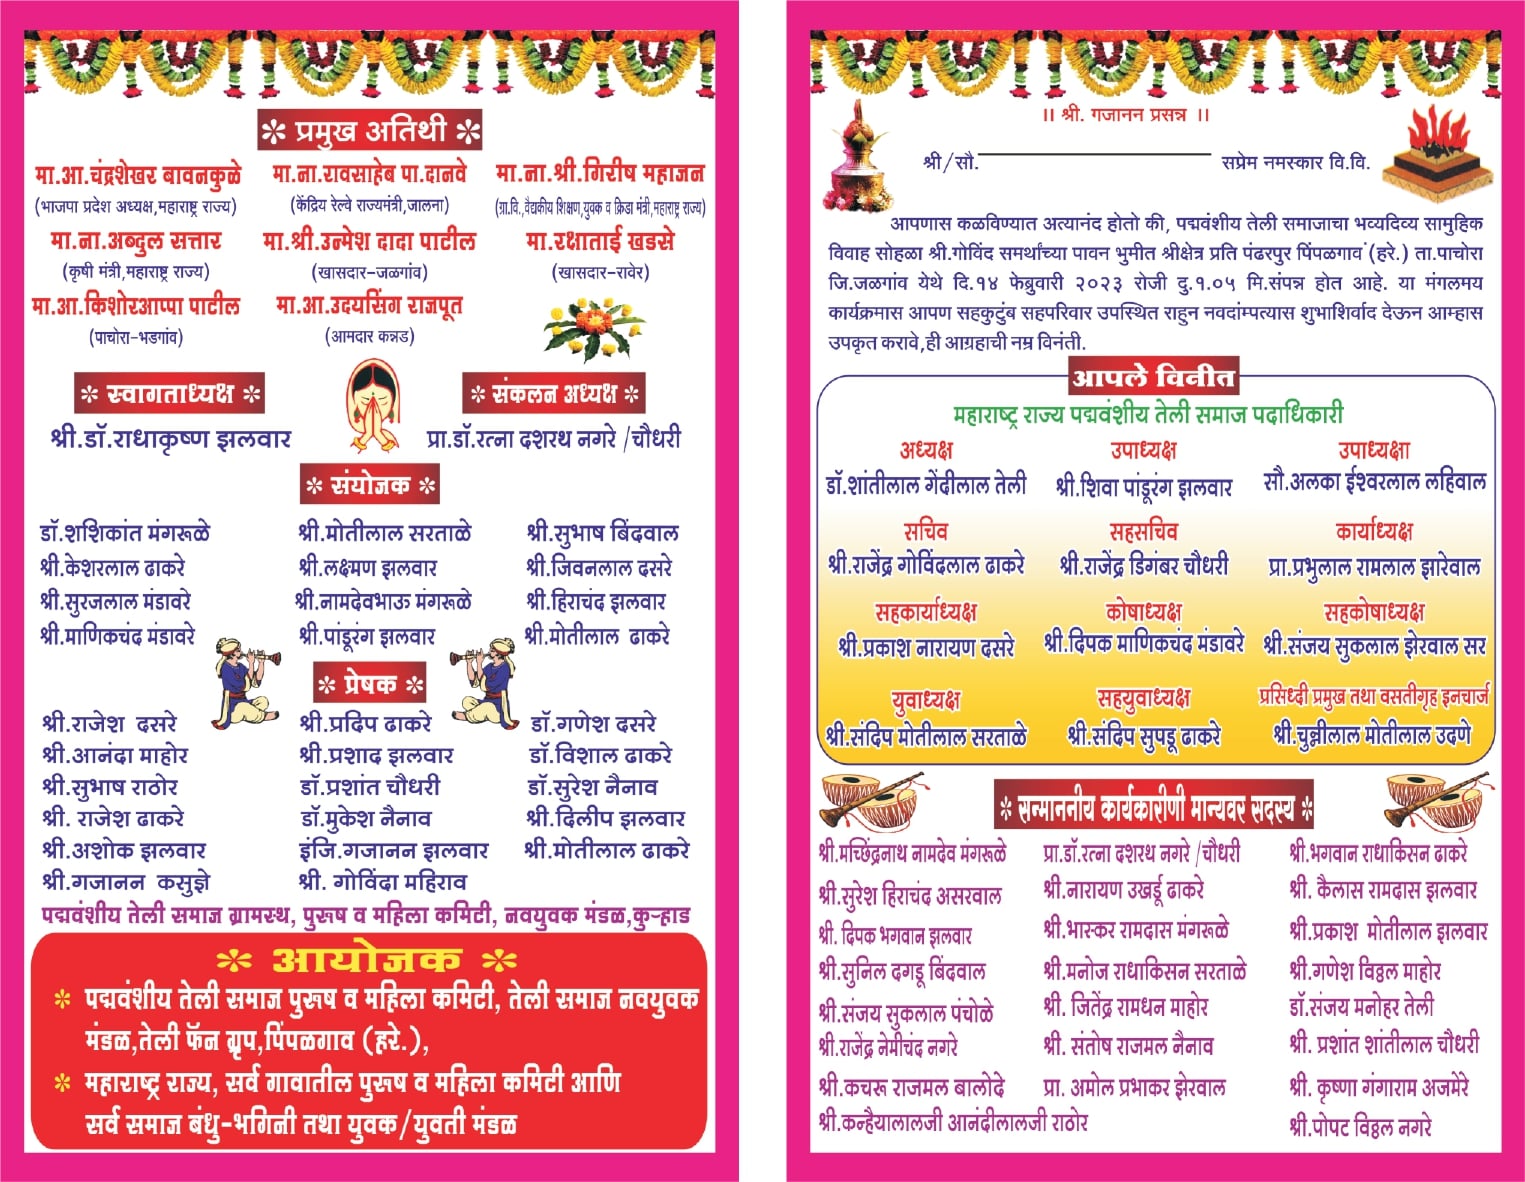 ❇ प्रमुख अतिथी ❇
मा.आ.चंद्रशेखर बावनकुळे
(भाजपा प्रदेश अध्यक्ष,महाराष्ट्र राज्य)
मा.ना.रावसाहेब पा.दानवे
(केंद्रिय रेल्वे राज्यमंत्री,जालना)
मा.ना.श्री.गिरीष महाजन
(ग्रा.वि.,वैद्यकीय शिक्षण,युवक व क्रिडा मंत्री,महाराष्ट्र राज्य)
मा.ना.अब्दुल सत्तार
(कृषी मंत्री,महाराष्ट्र राज्य)
मा.श्री.उन्मेश दादा पाटील
(खासदार-जळगांव)
मा.रक्षाताई खडसे
(खासदार-रावेर)
मा.आ.किशोरआप्पा पाटील
(पाचोरा-भडगांव)
मा.आ.उदयसिंग राजपूत
(आमदार कन्नड)
❇ स्वागताध्यक्ष ❇
श्री.डॉ.राधाकृष्ण झलवार
❇ संकलन अध्यक्ष ❇
प्रा.डॉ.रत्ना दशरथ नगरे /चौधरी
❇ संयोजक ❇
डॉ.शशिकांत मंगरूळे श्री.मोतीलाल सरताळे श्री.सुभाष बिंदवाल
श्री.केशरलाल ढाकरे श्री.लक्ष्मण झलवार श्री.जिवनलाल दसरे
श्री.सुरजलाल मंडावरे श्री.नामदेवभाऊ मंगरूळे श्री.हिराचंद झलवार
श्री.माणिकचंद मंडावरे श्री.पांडूरंग झलवार श्री.मोतीलाल ढाकरे
❇ प्रेषक ❇
श्री.राजेश दसरे श्री.प्रदिप ढाकरे डॉ.गणेश दसरे
श्री.आनंदा माहोर श्री.प्रशाद झलवार डॉ.विशाल ढाकरे
श्री.सुभाष राठोर डॉ.प्रशांत चौधरी डॉ.सुरेश नैनाव
श्री. राजेश ढाकरे डॉ.मुकेश नैनाव श्री.दिलीप झलवार
श्री.अशोक झलवार इंजि.गजानन झलवार श्री.मोतीलाल ढाकरे
श्री.गजानन कसुझे श्री. गोविंदा महिराव
पद्मवंशीय तेली समाज ग्रामस्थ, पुरूष व महिला कमिटी, नवयुवक मंडळ,कुऱ्हाड
❇ आयोजक ❇
❇ पद्मवंशीय तेली समाज पुरूष व महिला कमिटी, तेली समाज नवयुवक
मंडळ,तेली फॅन ग्रृप,पिंपळगाव (हरे.),
❇ महाराष्ट्र राज्य, सर्व गावातील पुरूष व महिला कमिटी आणि
सर्व समाज बंधु-भगिनी तथा युवक/युवती मंडळ
।। श्री. गजानन प्रसन्न ।।
श्री/सौ. सप्रेम नमस्कार वि.वि.
आपणास कळविण्यात अत्यानंद होतो की, पद्मवंशीय तेली समाजाचा भव्यदिव्य सामुहिक
विवाह सोहळा श्री.गोविंद समर्थांच्या पावन भुमीत श्रीक्षेत्र प्रति पंढरपुर पिंपळगाव ं(हरे.) ता.पाचोरा
जि.जळगांव येथे दि.१४ फेब्रुवारी २०२३ रोजी दु.१.०५ मि.संपन्न होत आहे. या मंगलमय
कार्यक्रमास आपण सहकुटुंब सहपरिवार उपस्थित राहुन नवदांम्पत्यास शुभाशिर्वाद देऊन आम्हास
उपकृत करावे,ही आग्रहाची नम्र विनंती.
आपले विनीत
महाराष्ट्र राज्य पद्मवंशीय तेली समाज पदाधिकारी
अध्यक्ष उपाध्यक्ष उपाध्यक्षा
डॉ.शांतीलाल गेंदीलाल तेली श्री.शिवा पांडूरंग झलवार सौ.अलका ईश्वरलाल लहिवाल
सचिव सहसचिव कार्याध्यक्ष
श्री.राजेंद्र गोविंदलाल ढाकरे श्री.राजेंद्र डिगंबर चौधरी प्रा.प्रभुलाल रामलाल झारेवाल
सहकार्याध्यक्ष कोषाध्यक्ष सहकोषाध्यक्ष
श्री.प्रकाश नारायण दसरे श्री.दिपक माणिकचंद मंडावरे श्री.संजय सुकलाल झेरवाल सर
युवाध्यक्ष सहयुवाध्यक्ष प्रसिध्दी प्रमुख तथा वसतीगृह इनचार्ज
श्री.संदिप मोतीलाल सरताळे श्री.संदिप सुपडू ढाकरे श्री.चुन्नीलाल मोतीलाल उदणे
❇ सन्माननीय कार्यकारीणी मान्यवर सदस्य ❇
श्री.मच्छिंद्रनाथ नामदेव मंगरूळे प्रा.डॉ.रत्ना दशरथ नगरे /चौधरी श्री.भगवान राधाकिसन ढाकरे
श्री.सुरेश हिराचंद असरवाल श्री.नारायण उखर्डू ढाकरे श्री. कैलास रामदास झलवार
श्री. दिपक भगवान झलवार श्री.भास्कर रामदास मंगरूळे श्री.प्रकाश मोतीलाल झलवार
श्री.सुनिल दगडू बिंदवाल श्री.मनोज राधाकिसन सरताळे श्री.गणेश विठ्ठल माहोर
श्री.संजय सुकलाल पंचोळे श्री. जितेंद्र रामधन माहोर डॉ.संजय मनोहर तेली
श्री.राजेंद्र नेमीचंद नगरे श्री. संतोष राजमल नैनाव श्री. प्रशांत शांतीलाल चौधरी
श्री.कचरू राजमल बालोदे प्रा. अमोल प्रभाकर झेरवाल श्री. कृष्णा गंगाराम अजमेरे
श्री.कन्हैयालालजी आनंदीलालजी राठोर श्री.पोपट विठ्ठल नगरे